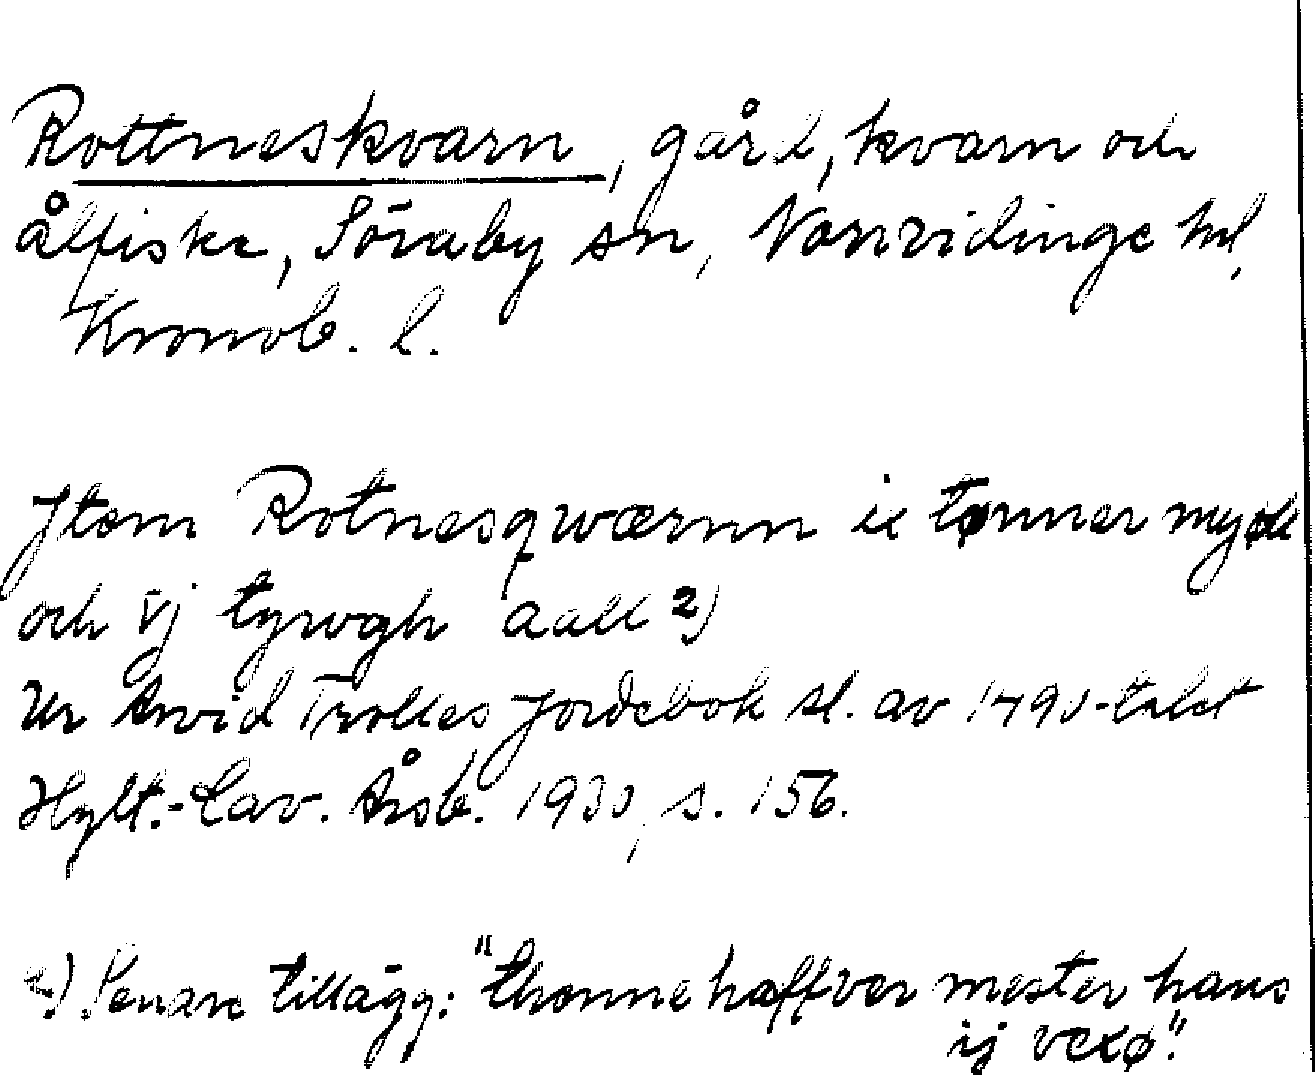 Rottneskvarn, gård, kvarn och
ålfiske, Söraby sn, Norrvidinge hd,
Kronob. l.
Jtem Rotnesqwærnn ix tønner myøll
och vj tyrwgh aall 2)
Ur Arvid Trolles jordebok sl. av 1490-talet
Hylt.-Cav. Årsb. 1930, s. 156.
2) Senare tillägg: "thenne haffver mester hans
ij vexø".